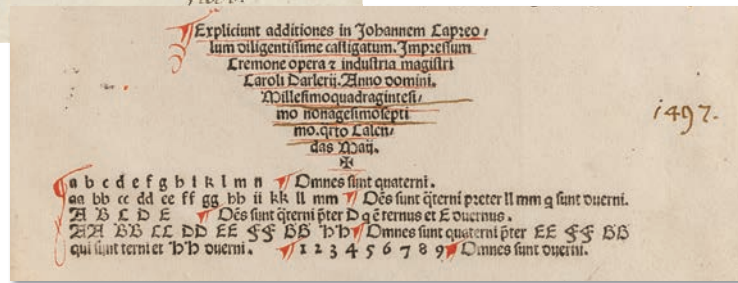 ¶Expliciunt additiones in Johannem Capreo⸗
lum diligentissime castigatum. Impressum
Cremone opera ⁊ industria magistri
Caroli Darlerij. Anno domini.
Millesimoquadragintesi⸗
mo nonagesimosepti
mo. qrto Calen⸗
das Maij.
✠
a b c d e f g h i k l m n ¶ Omnes sunt quaterni.
aa bb cc dd ee ff gg hh ii kk ll mm ¶ Oẽs sunt q̃terni preter ll mm q̃ sunt duerni.
A B C D E ¶ Oẽs sunt q̃terni p̃ter D q ẽ ternus et E duernus.
AA BB CC DD EE FF GG HH ¶ Omnes sunt quaterni p̃ter EE FF GG
qui sunt terni et HH duerni. ¶ 1 2 3 4 5 6 7 8 9 ¶ Omnes sunt duerni.
1497.